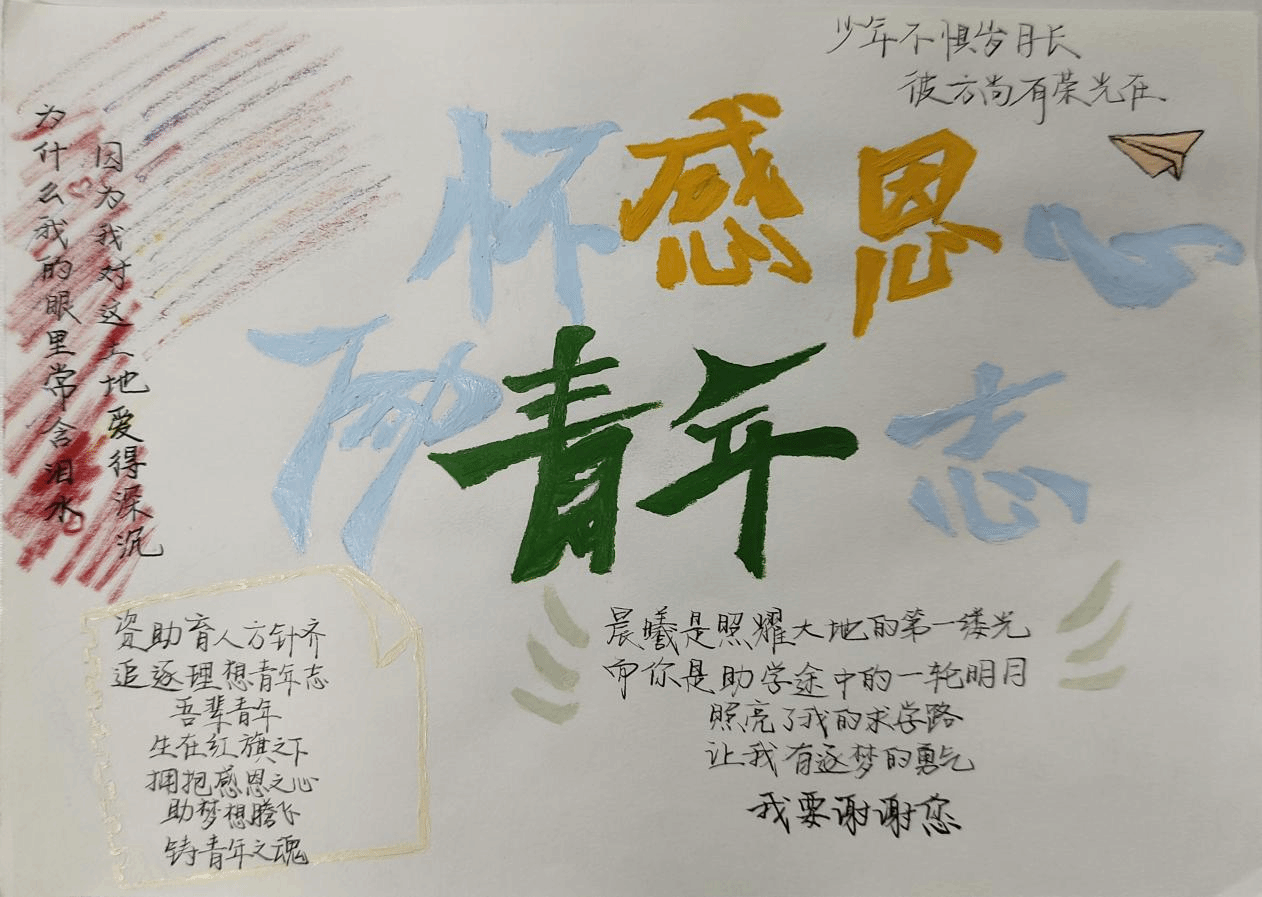 少年不惧岁月长
彼方尚有荣光在.
为什么我的眼里常含泪水
因为我对这土地爱得深沉
怀感恩心
励青年志
资助育人方针齐
追逐理想青年志
吾辈青年
生在红旗之下
拥抱感恩之心
助梦想腾飞
铸青年之魂
晨曦是照耀大地的第一缕光
而你是助学途中的一轮明月
照亮了我的求学路
让我有逐梦的勇气
我要谢谢您